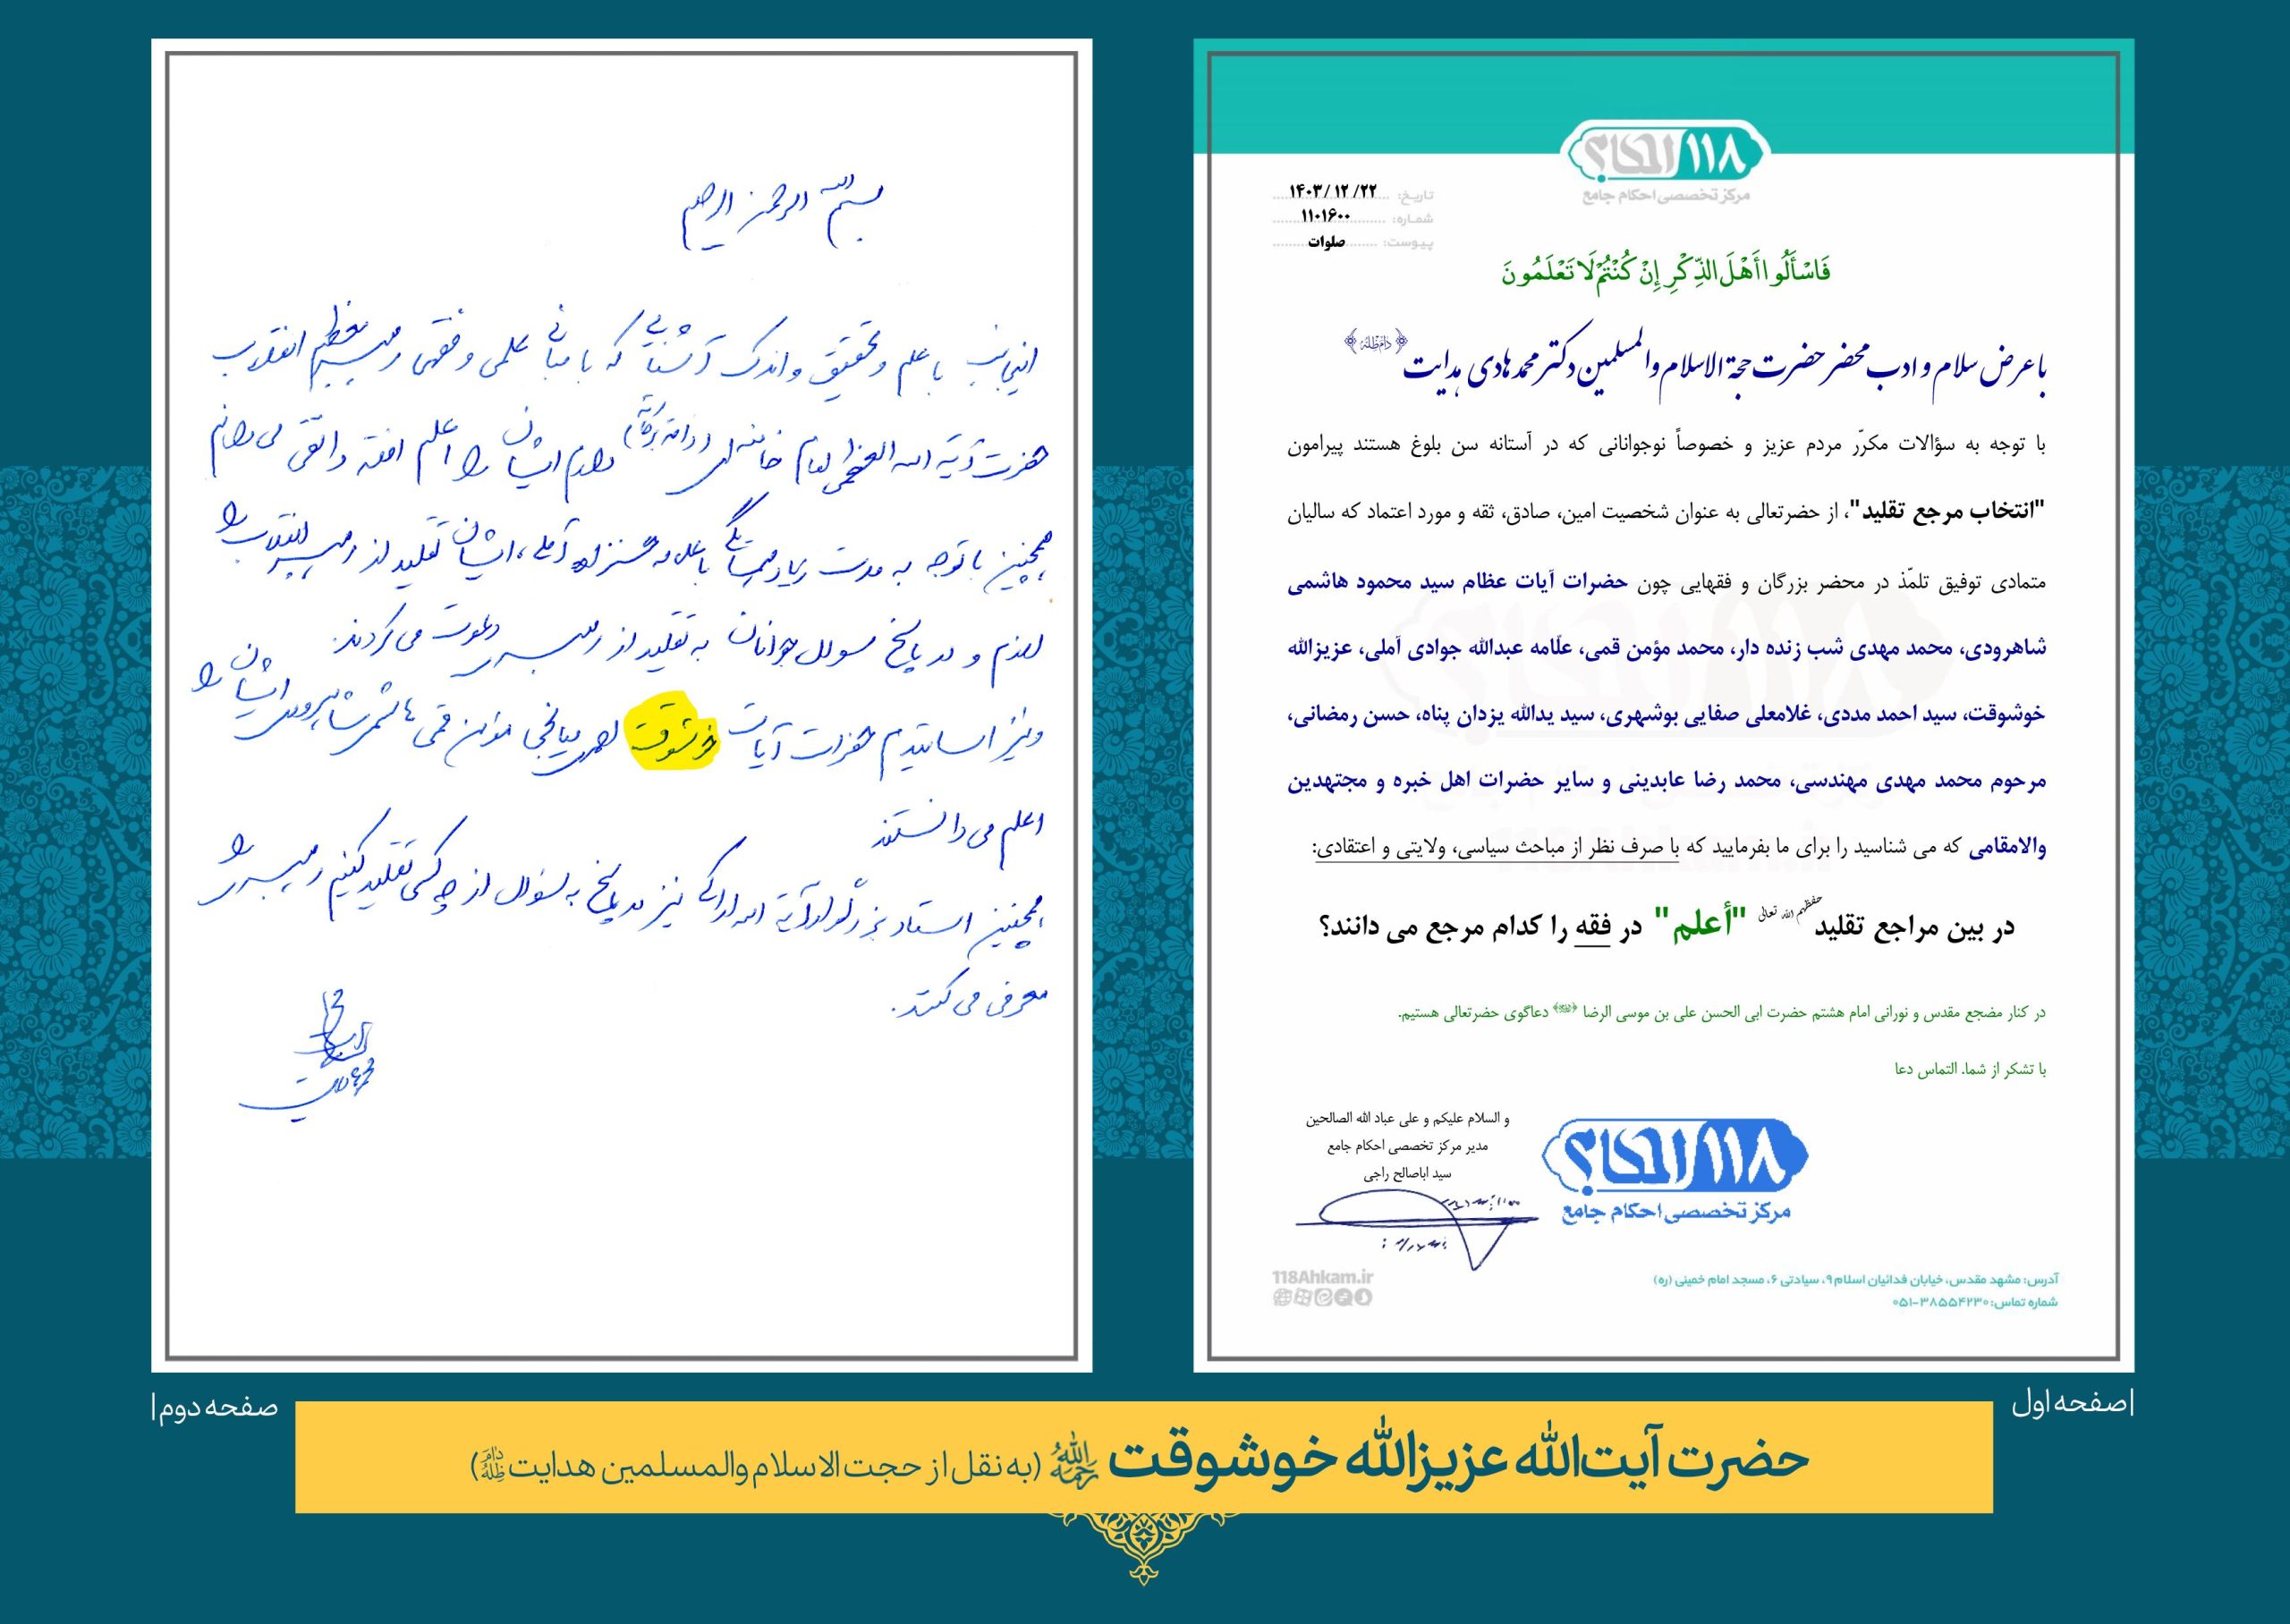 ۱۱۸ احکام
مرکز تخصصی احکام جامع
تاریخ: ۱۴۰۳/۱۲/۲۲
شماره: ۱۱۰۱۶۰۰
پیوست: صلوات
فَاسْأَلُوا أَهْلَ الذِّكْرِ إِنْ كُنْتُمْ لَا تَعْلَمُونَ
با عرض سلام و ادب محضر حضرت حجة الاسلام والمسلمین دکتر محمد هادی هدایت ﴿دام ظله﴾
با توجه به سؤالات مکرّر مردم عزیز و خصوصاً نوجوانانی که در آستانه سن بلوغ هستند پیرامون
"انتخاب مرجع تقلید"، از حضرتعالی به عنوان شخصیت امین، صادق، ثقه و مورد اعتماد که سالیان
متمادی توفیق تلمّذ در محضر بزرگان و فقهایی چون حضرات آیات عظام سید محمود هاشمی
شاهرودی، محمد مهدی شب زنده دار، محمد مؤمن قمی، علّامه عبدالله جوادی آملی، عزیزالله
خوشوقت، سید احمد مددی، غلامعلی صفایی بوشهری، سید یدالله یزدان پناه، حسن رمضانی،
مرحوم محمد مهدی مهندسی، محمد رضا عابدینی و سایر حضرات اهل خبره و مجتهدین
والامقامی که می شناسید را برای ما بفرمایید که با صرف نظر از مباحث سیاسی، ولایتی و اعتقادی:
در بین مراجع تقلید حفظهم الله تعالی "أعلم" در فقه را کدام مرجع می دانند؟
در کنار مضجع مقدس و نورانی امام هشتم حضرت ابی الحسن علی بن موسی الرضا دعاگوی حضرتعالی هستیم.
با تشکر از شما. التماس دعا
و السلام علیکم و علی عباد الله الصالحین
مدیر مرکز تخصصی احکام جامع
سید اباصالح راجی
۱۱۸ احکام
مرکز تخصصی احکام جامع
118Ahkam.ir
آدرس: مشهد مقدس، خیابان فدائیان اسلام ۹، سیادتی ۶، مسجد امام خمینی (ره)
شماره تماس: ۳۸۵۵۴۲۳۰-۰۵۱
|صفحه اول
بسم الله الرحمن الرحیم
اینجانب با علم و تحقیق و اندک آشنایی که با مبانی علمی و فقهی رهبر معظم انقلاب
حضرت آیة الله العظمی امام خامنه ای (دامت برکاته) دارم ایشان را اعلم افقه و اتقی می دانم
همچنین با توجه به مدت زیاد همسایگی با علامه حسن زاده آملی، ایشان تقلید از رهبر انقلاب را
لازم و در پاسخ سوال جوانان به تقلید از رهبری دعوت می کردند.
و نیز اساتیدم حضرات آیات خوشوقت احمدی میانجی مومن قمی هاشمی شاهرودی ایشان را
اعلم می دانستند
همچنین استاد بزرگوار آیة الله اراکی نیز در پاسخ به سؤال از چه کسی تقلید کنیم رهبری را
معرفی می کنند.
صفحه دوم|
حضرت آیت‌الله عزیزالله خوشوقت رحمه الله (به نقل از حجت الاسلام والمسلمین هدایت دام ظله)